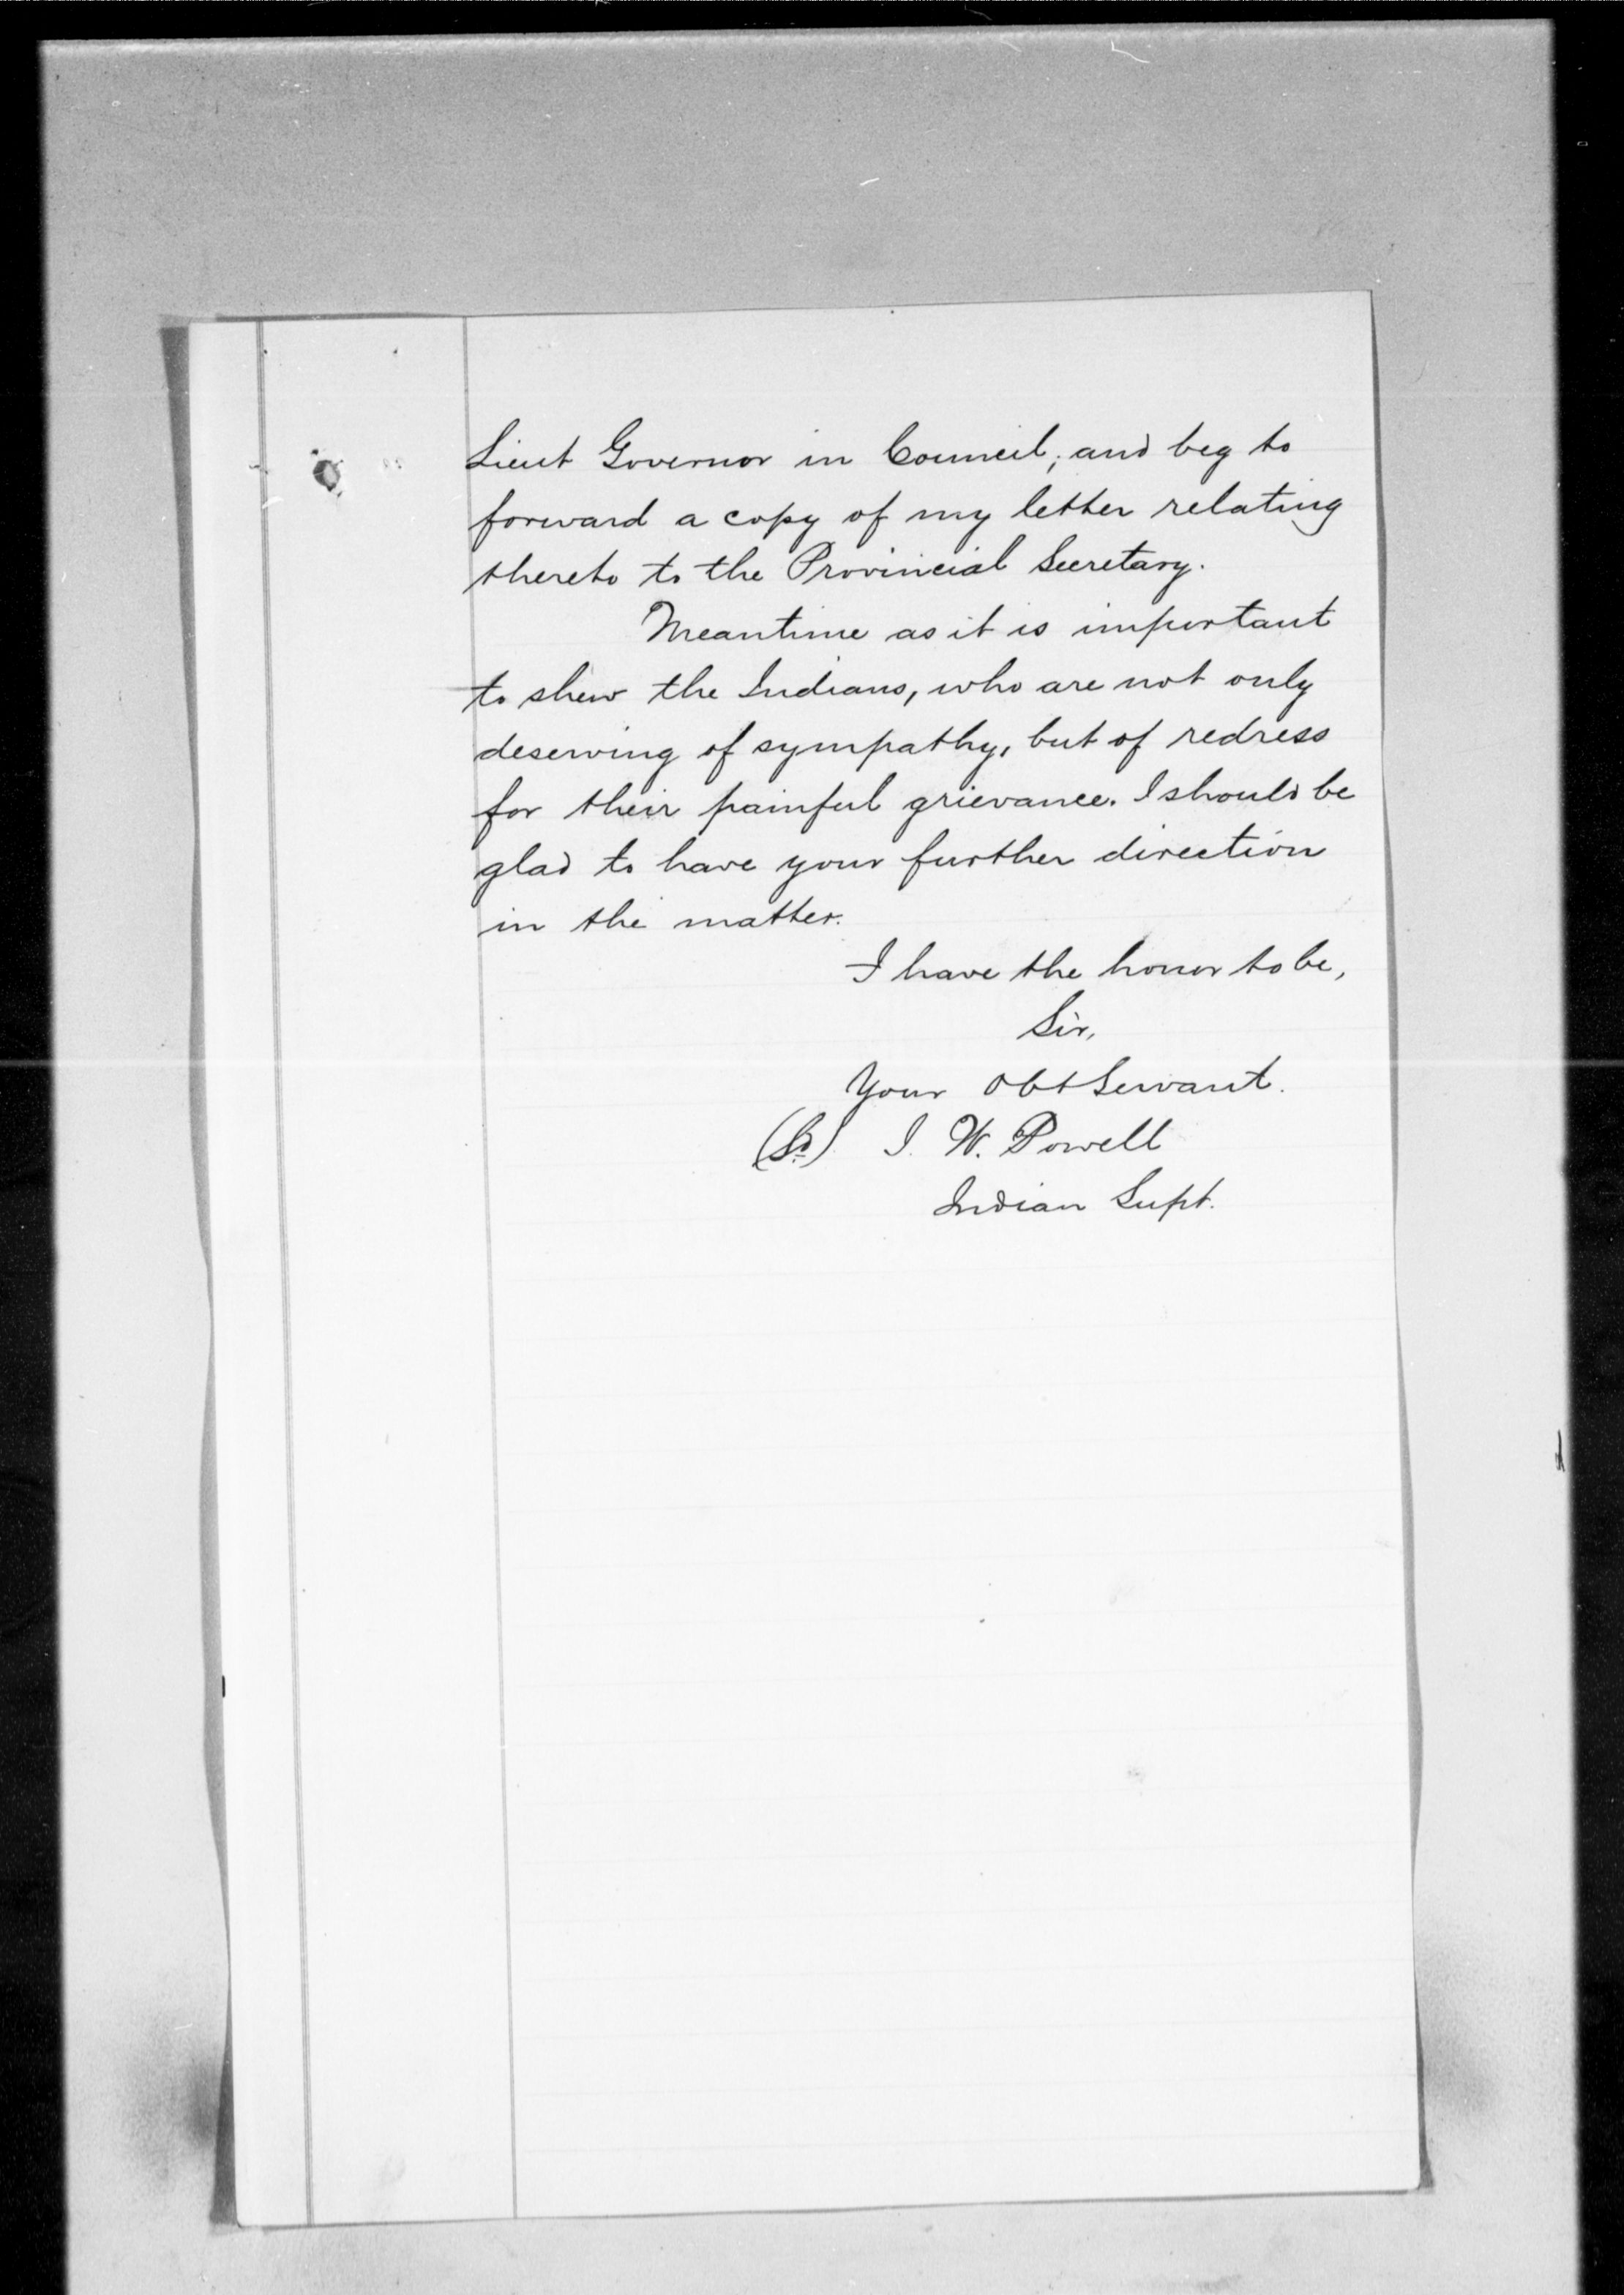 Lieut Governor in Council; and beg to
forward a copy of my letter relating
thereto to the Provincial Secretary.
Meantime as it is important
to shew the Indians, who are not only
deserving of sympathy, but of redress
for their painful grievance. I should be
glad to have your further direction
in the matter.
I have the honor to be,
Sir,
Your Obt Servant.
(Sd) I. W. Powell
Indian Supt.